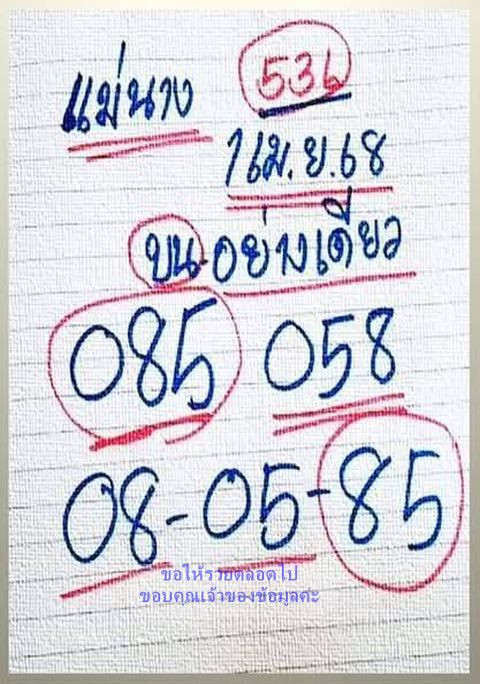 แม่นาง 536
1 เม.ย.68
บน อย่างเดียว
085 058
08-05-85
ขอให้รวยตลอดไป
ขอบคุณเจ้าของข้อมูลค่ะ